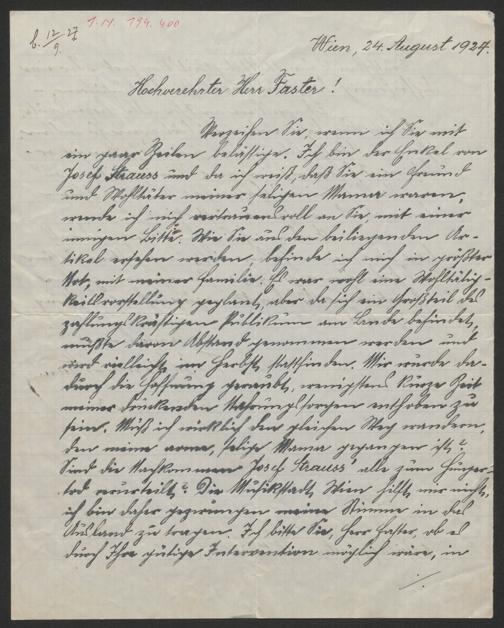 I.N. 194.400
b. 12/9. 27
Wien, 24. August 1927.
Hochverehrter Herr Faster!
Verzeihen Sie, wenn ich Sie mit
ein paar Zeilen belästige. Ich bin der Enkel von
Josef Strauss und da ich weiß, daß Sie ein Freund
und Wohltäter meiner seligen Mama waren,
wende ich mich vertrauensvoll an Sie, mit einer
innigen Bitte. Wie Sie aus den beiliegenden Ar-
tikel ersehen werden, befinde ich mich in größter
Not, mit meiner Familie. Es war wohl eine Wohltätig-
keitsvorstellung geplant, aber da sich ein Großteil des
zahlungskräftigen Publikum am Lande befindet,
mußte davon Abstand genommen werden und
wird vielleicht im Herbst stattfinden. Mir wurde da-
durch die Hoffnung geraubt, wenigstens kurze Zeit
meiner drückenden Nahrungssorgen enthoben zu
sein. Muß ich wirklich den gleichen Weg wandern,
den meine arme, selige Mama gegangen ist?
Sind die Nachkommen Josef Strauss' alle zum Hunger-
tod verurteilt? Die Musikstadt Wien hilft mir nicht,
ich bin daher gezwungen meine Stimme in das
Ausland zu tragen. Ich bitte Sie, Herr Faster, ob es
durch Ihre gütige Intervention möglich wäre, in
./.